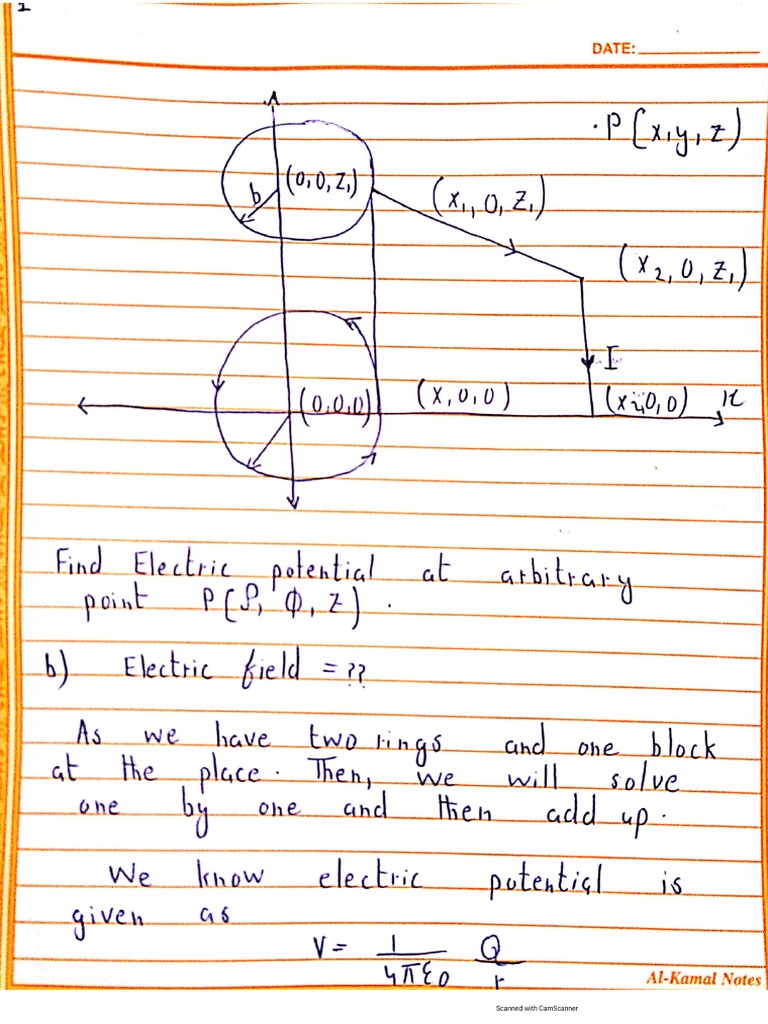 1
DATE:
.P(x,y,z)
(0,0,z₁)
b
(x₁,0,z₁)
(x₂,0,z₁)
I
(0,0,0)
(x,0,0)
(x₂,0,0)
x
Find Electric potential at arbitrary
point P(ρ, φ, z).
b) Electric field = ??
As we have two rings and one block
at the place. Then, we will solve
one by one and then add up.
We know electric potential is
given as
V = 1/4πε0 Q/r
Al-Kamal Notes
Scanned with CamScanner